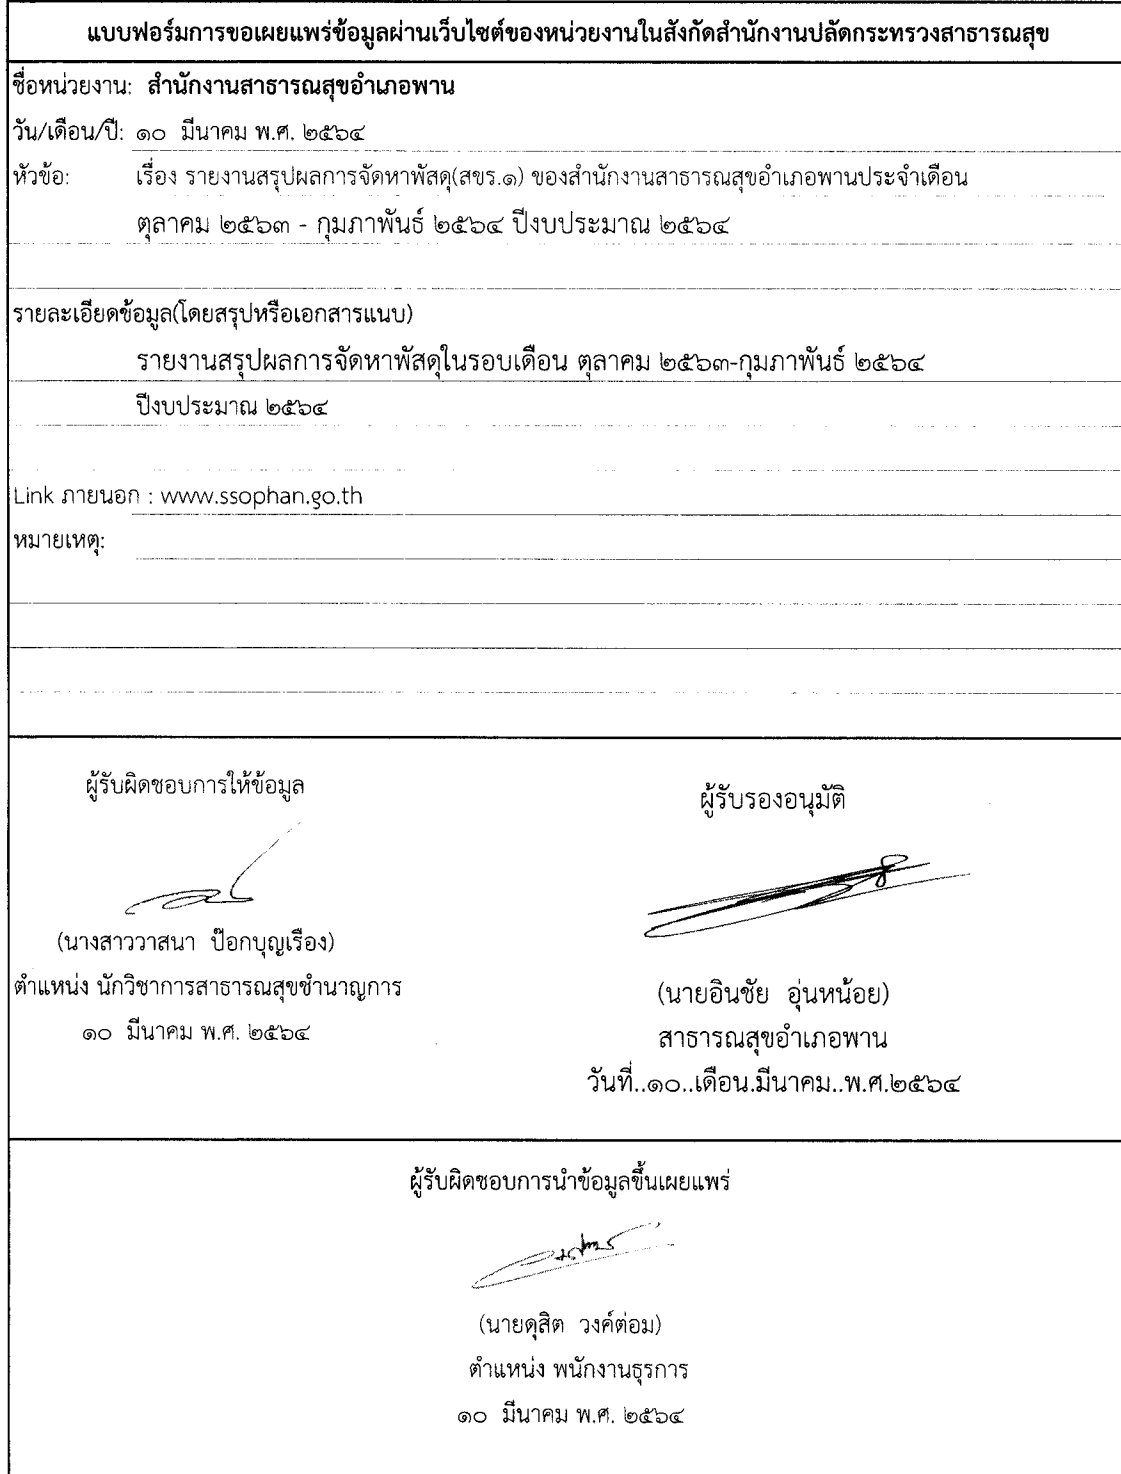 แบบฟอร์มการขอเผยแพร่ข้อมูลผ่านเว็บไซต์ของหน่วยงานในสังกัดสำนักงานปลัดกระทรวงสาธารณสุข
ชื่อหน่วยงาน: สำนักงานสาธารณสุขอำเภอพาน
วัน/เดือน/ปี: ๑๐ มีนาคม พ.ศ. ๒๕๖๔
หัวข้อ: เรื่อง รายงานสรุปผลการจัดหาพัสดุ(สขร.๑) ของสำนักงานสาธารณสุขอำเภอพานประจำเดือน
ตุลาคม ๒๕๖๓ - กุมภาพันธ์ ๒๕๖๔ ปีงบประมาณ ๒๕๖๔
รายละเอียดข้อมูล(โดยสรุปหรือเอกสารแนบ)
รายงานสรุปผลการจัดหาพัสดุในรอบเดือน ตุลาคม ๒๕๖๓-กุมภาพันธ์ ๒๕๖๔
ปีงบประมาณ ๒๕๖๔
Link ภายนอก : www.ssophan.go.th
หมายเหตุ:
ผู้รับผิดชอบการให้ข้อมูล
ผู้รับรองอนุมัติ
(นางสาววาสนา ป๊อกบุญเรือง)
ตำแหน่ง นักวิชาการสาธารณสุขชำนาญการ
๑๐ มีนาคม พ.ศ. ๒๕๖๔
(นายอินชัย อุ่นหน้อย)
สาธารณสุขอำเภอพาน
วันที่..๑๐..เดือน.มีนาคม..พ.ศ.๒๕๖๔
ผู้รับผิดชอบการนำข้อมูลขึ้นเผยแพร่
(นายดุสิต วงค์ต่อม)
ตำแหน่ง พนักงานธุรการ
๑๐ มีนาคม พ.ศ. ๒๕๖๔